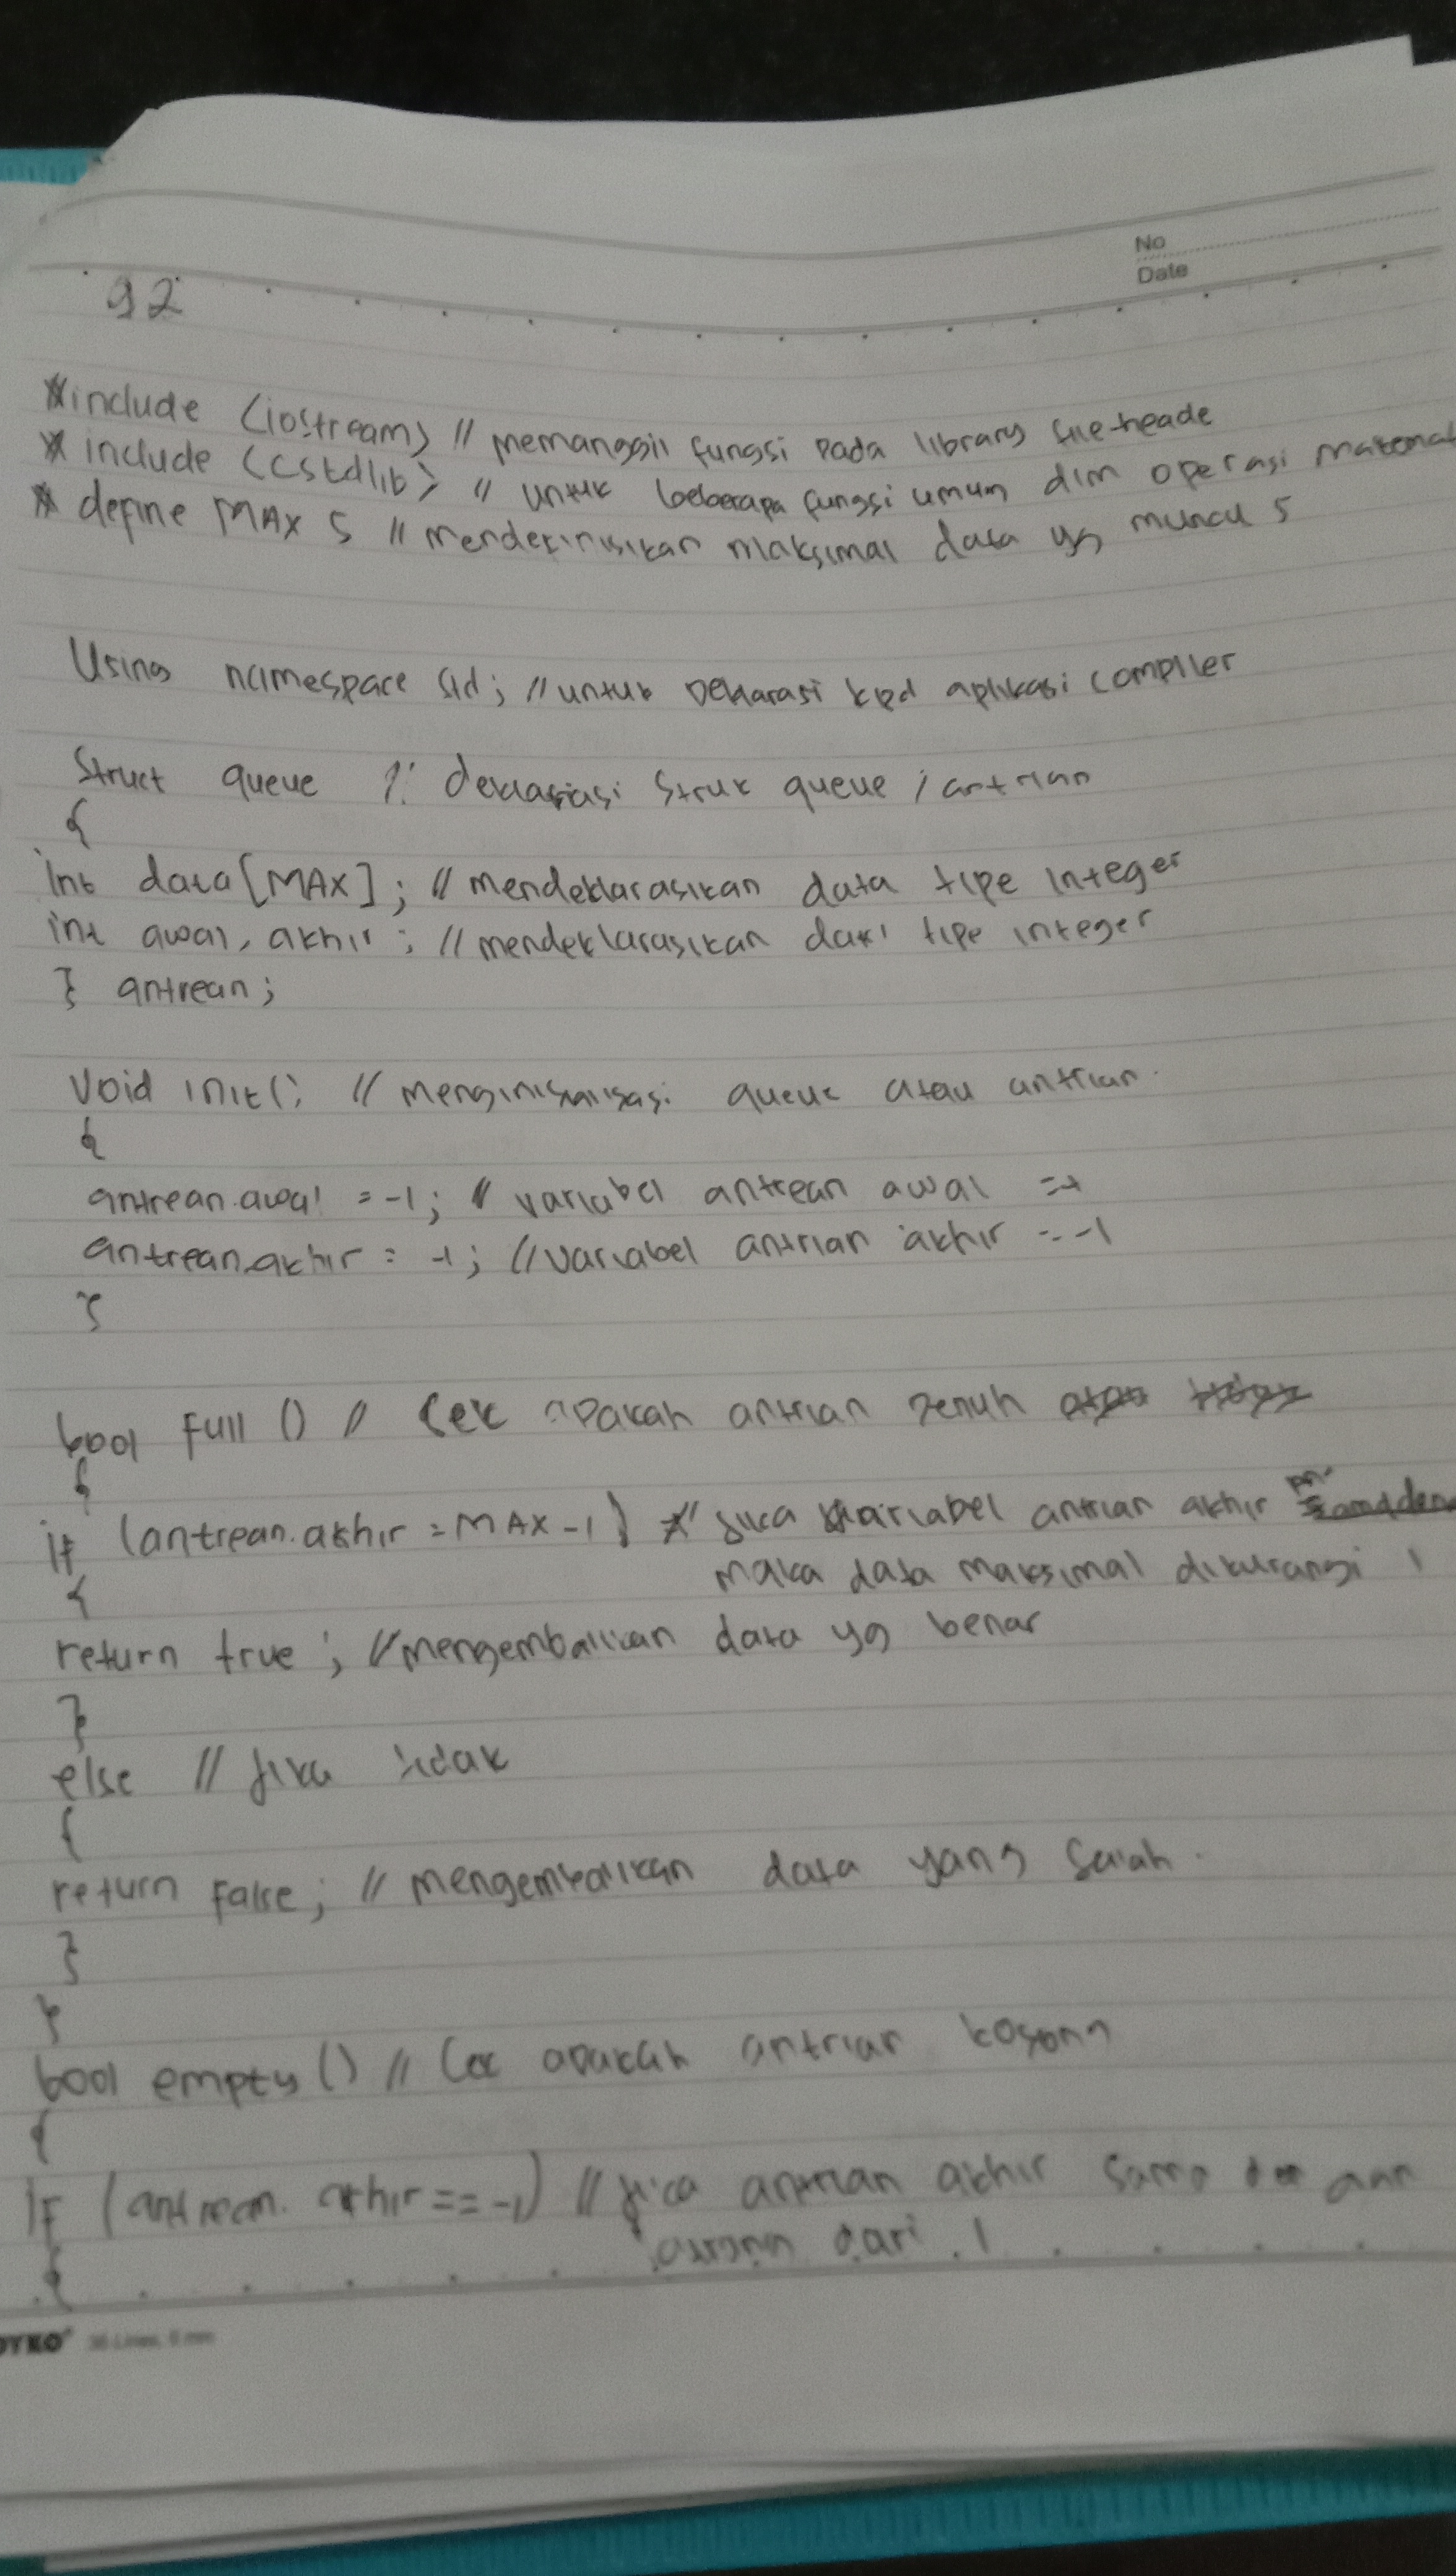 No
Date
92
#include <iostream> // memanggil fungsi pada library file heade
# include <cstdlib> // untuk beberapa fungsi umum dlm operasi matemat
# define MAX 5 // mendefinisikan maksimal data yg muncul 5
Using namespace std; // untuk deklarasi kpd aplikasi compiler
Struct queue // deklarasi struk queue / antrian
{
int data[MAX]; // mendeklarasikan data tipe integer
int awal, akhir; // mendeklarasikan dari tipe integer
} antrean;
Void init() // menginisialisasi queue atau antrian.
{
antrean.awal = -1; // variabel antrean awal =-1
antrean.akhir = -1; // variabel antrian akhir = -1
}
bool full () // Cek apakah antrian penuh
{
if (antrean.akhir = MAX -1) // jika variabel antrian akhir
maka data maksimal dikurangi 1
{
return true; // mengembalikan data yg benar
}
else // jika tidak
{
return false; // mengembalikan data yang salah.
}
}
bool empty () // Cek apakah antrian kosong
{
if (antrean. akhir == -1) // jika antrian akhir sama
dari 1
{
36 Lines, 8 mm